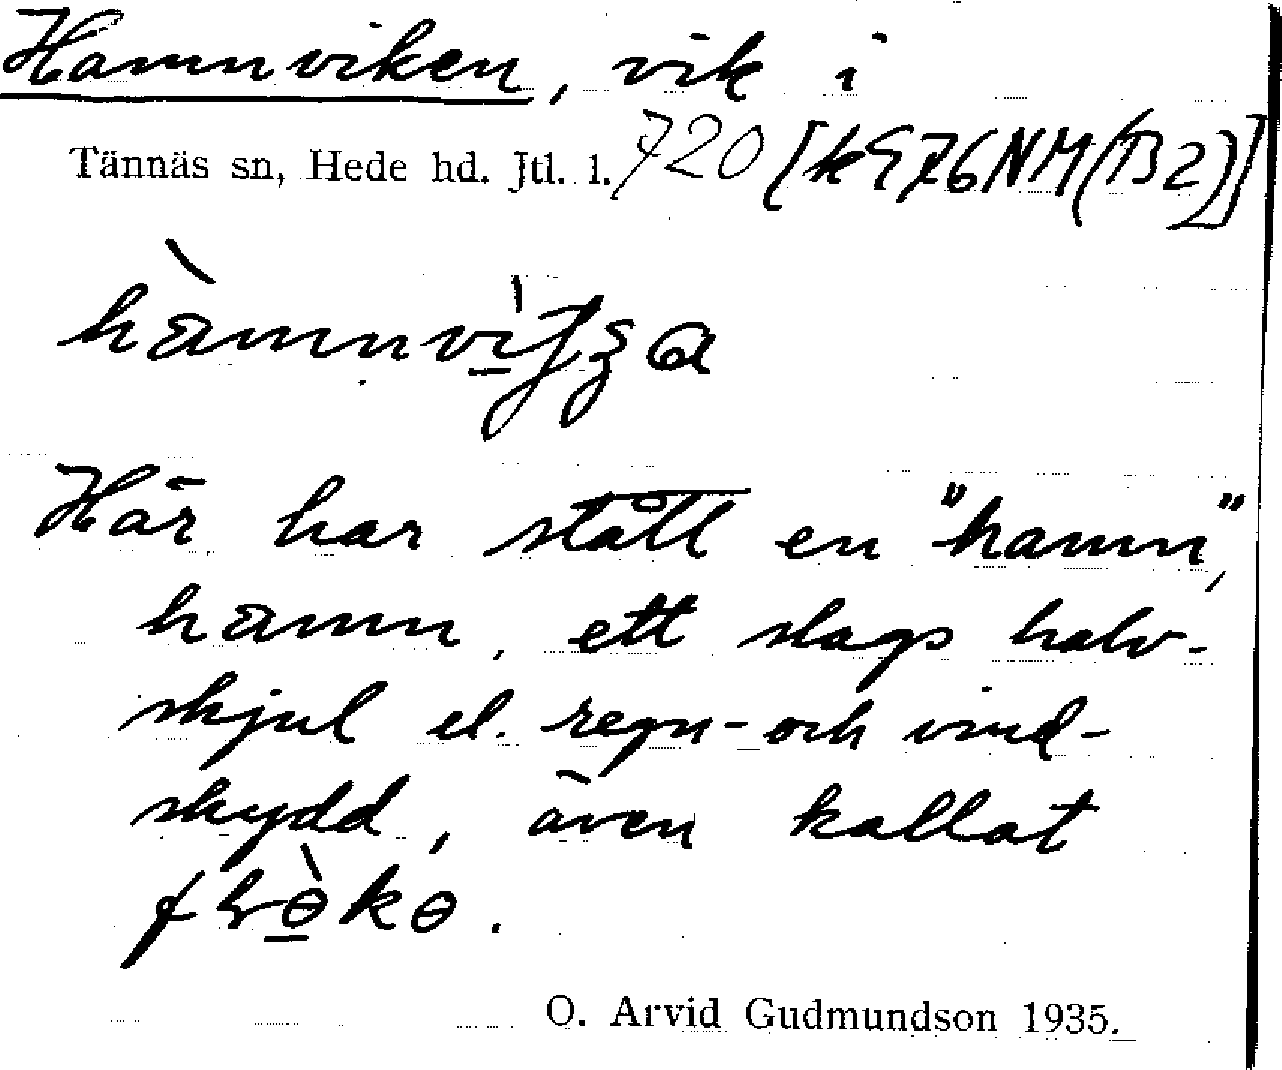 Hamnviken, vik i
Tännäs sn, Hede hd. Jtl. l. 720
här har stått en "hamn",
hamn, ett slags halv-
skjul el. regn- och vind-
skydd, även kallat
O. Arvid Gudmundson 1935.